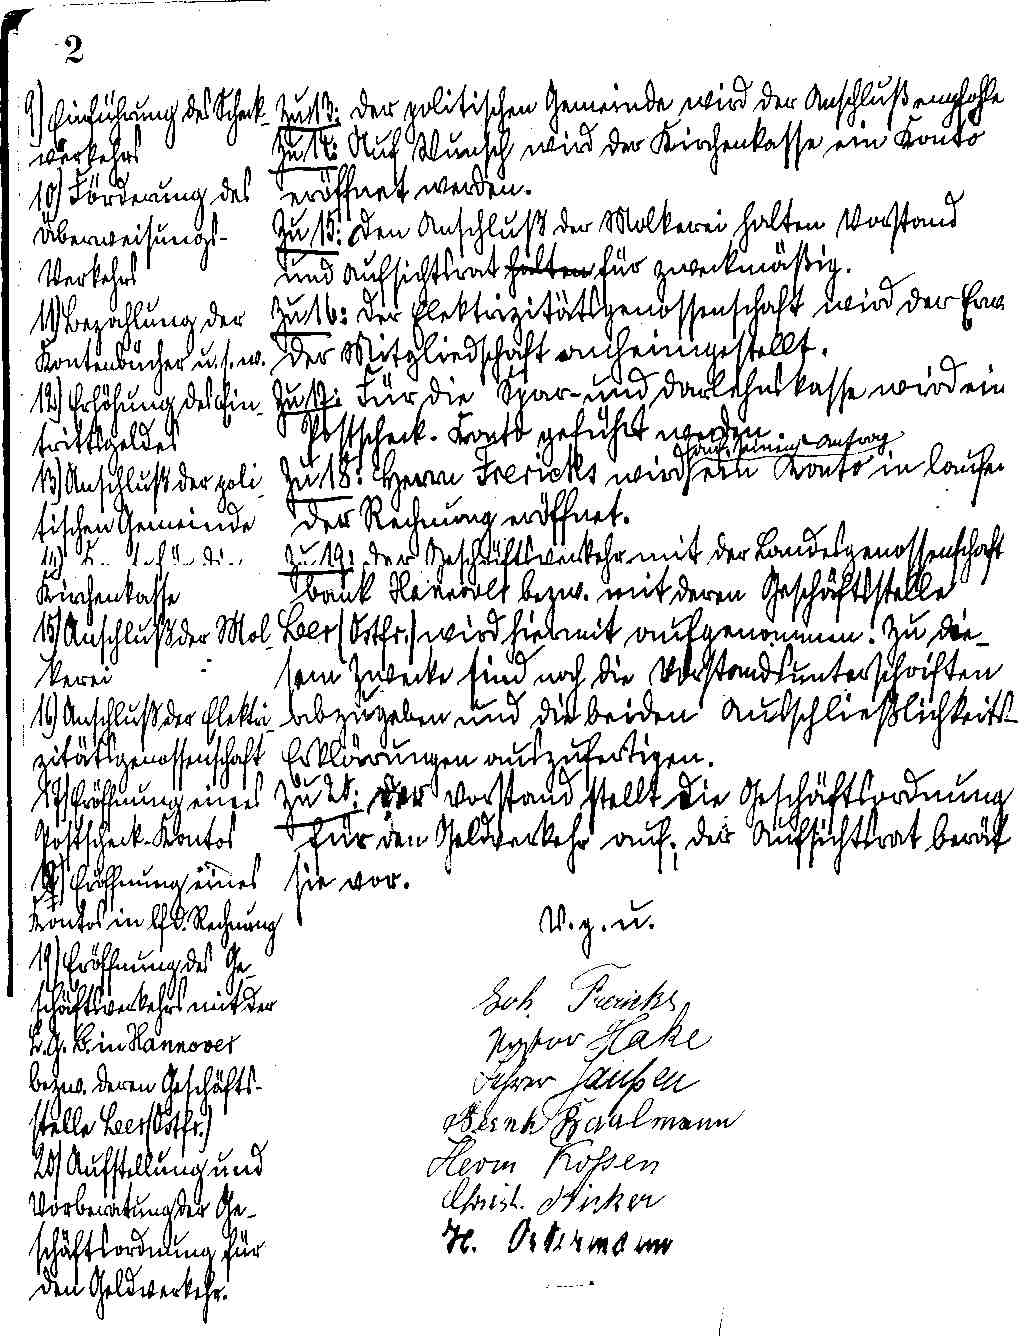 2
9) Einführung des Scheck-
verkehrs
10) Förderung des
Überweisungs-
Verkehrs
11) Bezahlung der
Kontenbücher u.s.w.
12) Erhöhung des Ein-
trittsgeldes
13) Anschluß der poli-
tischen Gemeinde
Kirchenkasse
15) Anschluß der Mol-
kerei
16) Anschluß der Elektri-
zitätsgenossenschaft
17) Eröffnung eines
Postscheck-Kontos
18) Eröffnung eines
Kontos in lfd. Rechnung
19) Eröffnung des Ge-
schäftsverkehrs mit der
L.G.B. in Hannover
bezw. deren Geschäfts-
stelle Leer (Ostfr.)
20) Aufstellung und
Vorberatung der Ge-
schäftsordnung für
den Geldverkehr.
Zu 13: Der politischen Gemeinde wird der Anschluß empfohlen
Zu 14: Auf Wunsch wird der Kirchenkasse ein Konto
eröffnet werden.
Zu 15: Den Anschluß der Molkerei halten Vorstand
und Aufsichtsrat halten für zweckmäßig.
Zu 16: Der Elektrizitätsgenossenschaft wird der Erw.
der Mitgliedschaft anheimgestellt.
Zu 17: Für die Spar- und Darlehnskasse wird ein
Postscheck-Konto geführt werden
auf seinen Antrag
Zu 18: Herrn Frericks wird ein Konto in laufen
der Rechnung eröffnet.
Zu 19: Der Geschäftsverkehr mit der Landesgenossenschaft
bank Hannover bezw. mit deren Geschäftsstelle
Leer (Ostfr.) wird hiermit aufgenommen. Zu die-
sem Zwecke sind noch die Vorstandsunterschriften
abzugeben und die beiden Ausschließlichkeits-
Erklärungen auszufertigen.
Zu 20: Der Vorstand stellt die Geschäftsordnung
für den Geldverkehr auf; der Aufsichtsrat berät
sie vor.
V. g. u.
Joh. Frericks
Pastor Hake
Lehrer Janßen
Bernh Kaalmann
Herm Koßen
Christ. Kirker
H. Ostermann